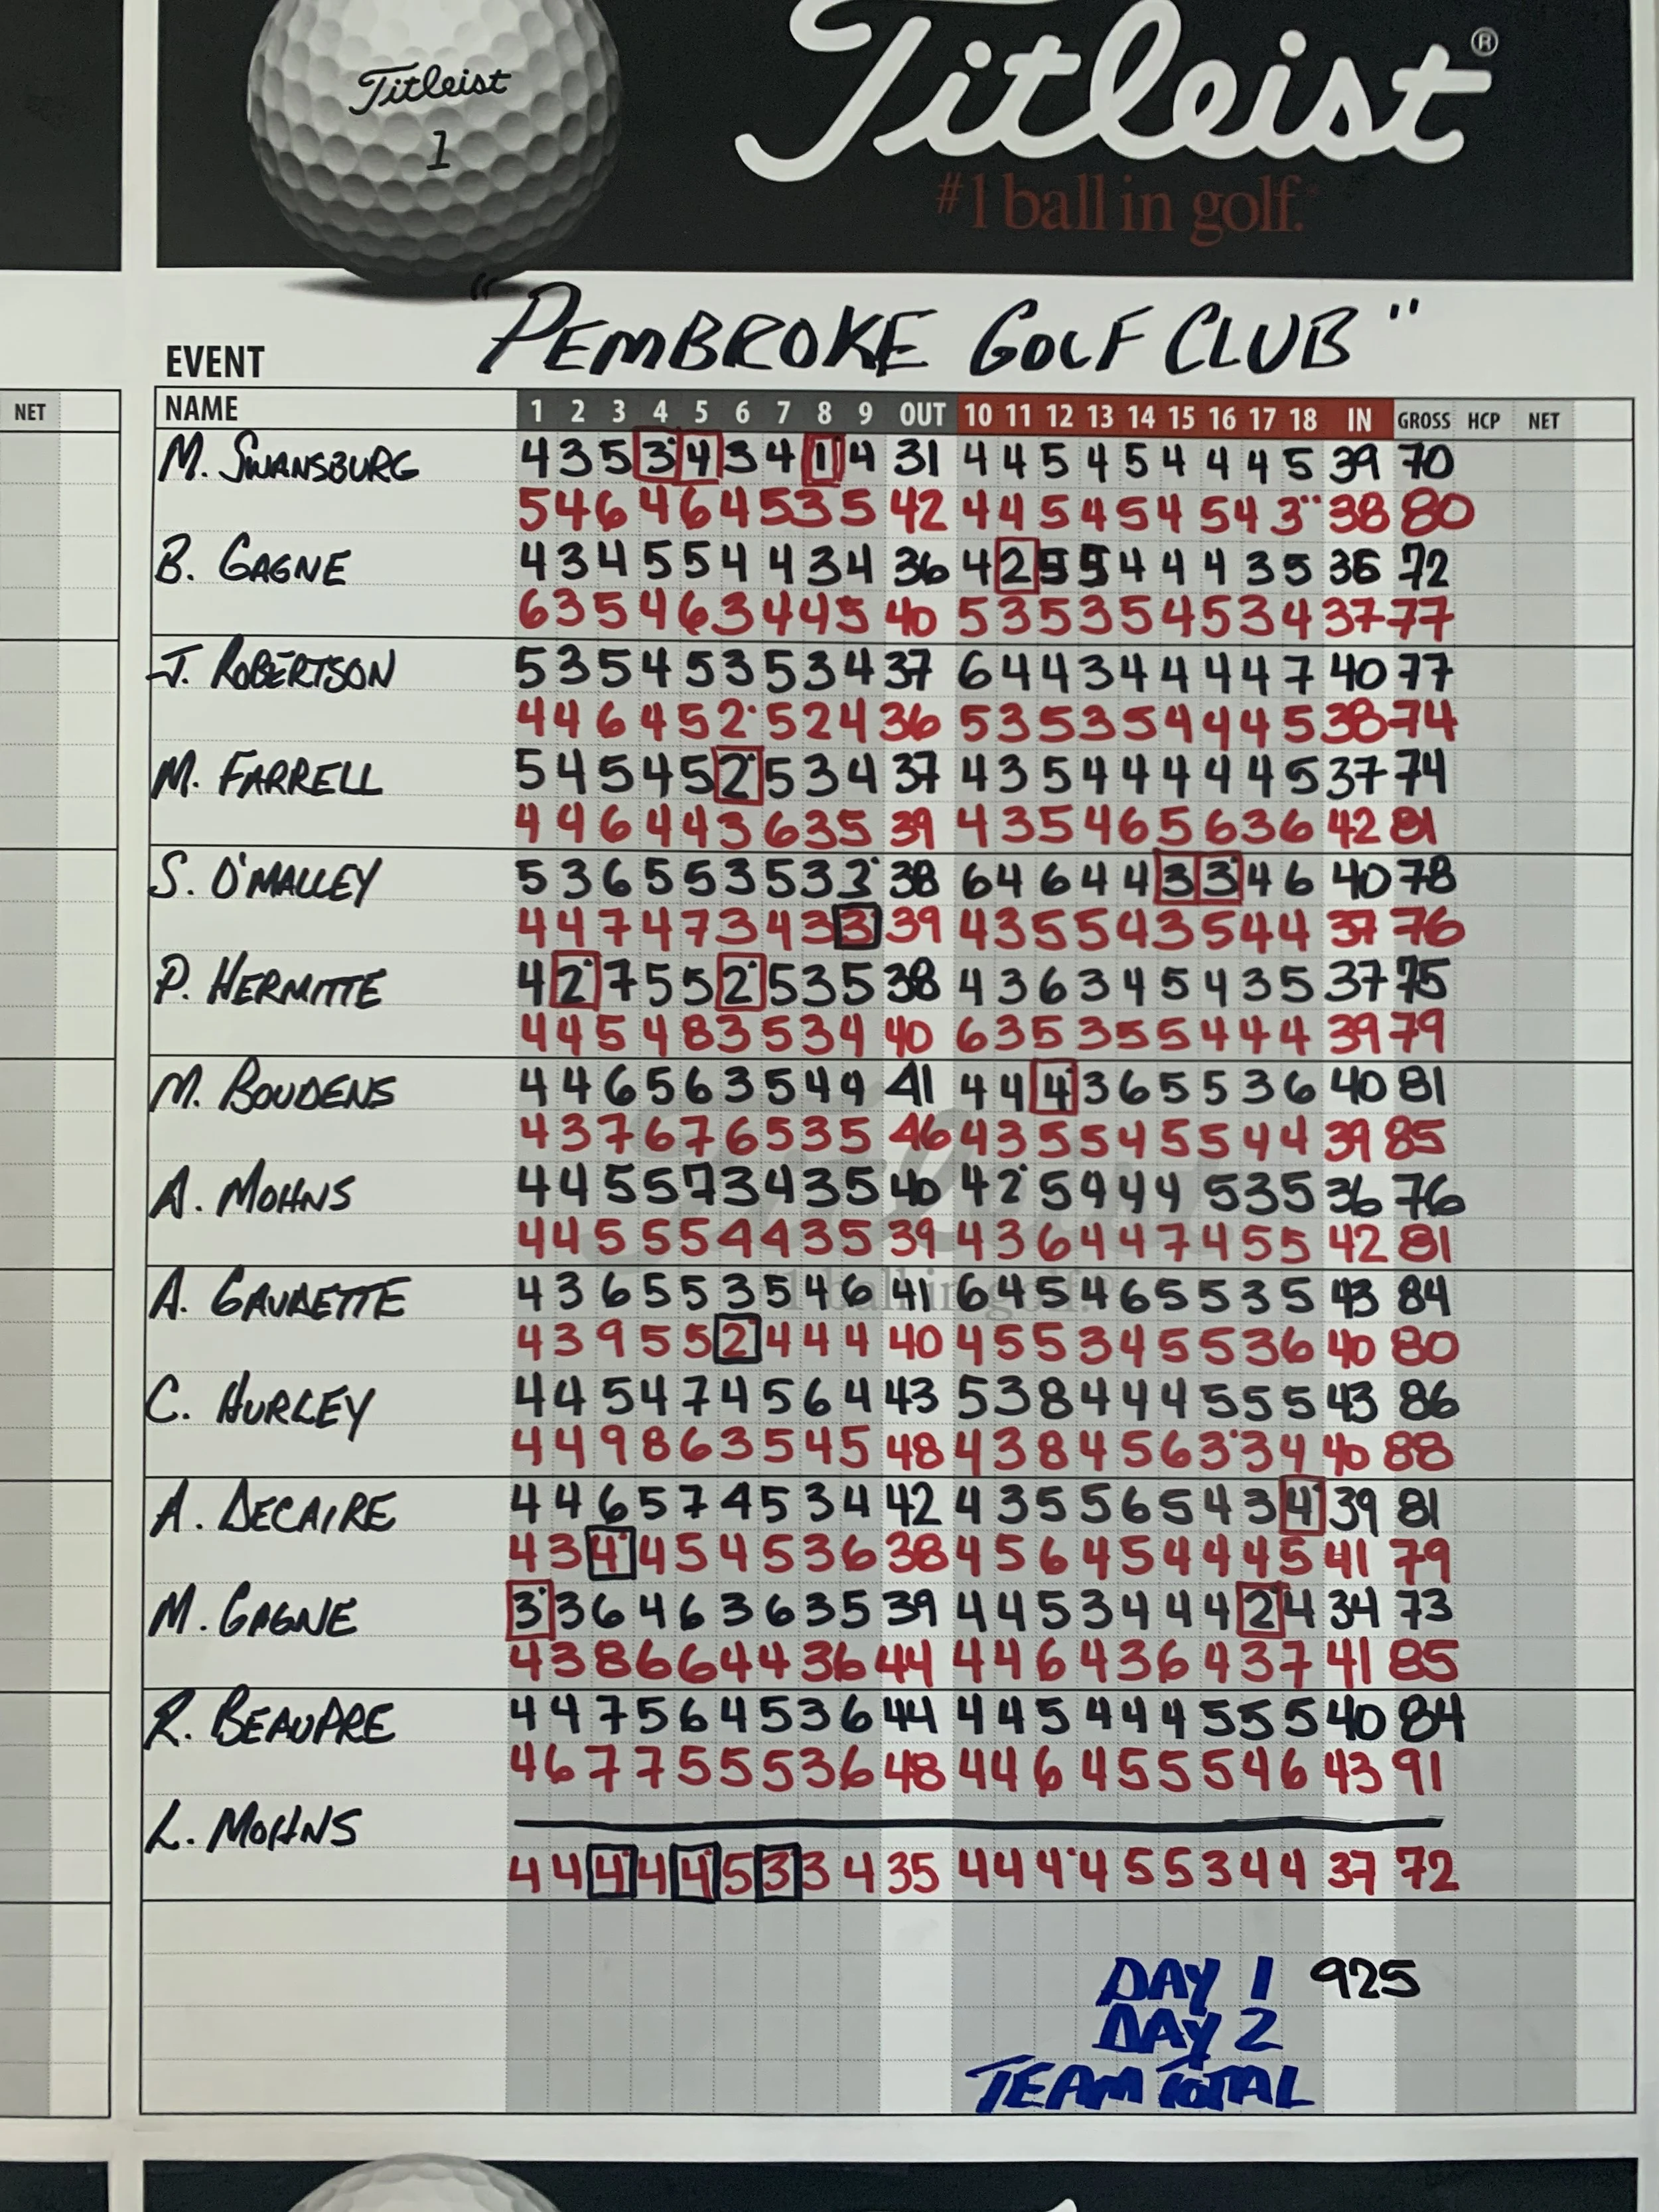 Titleist
1
Titleist®
#1 ball in golf.®
EVENT "PEMBROKE GOLF CLUB"
NET
NAME 1 2 3 4 5 6 7 8 9 OUT 10 11 12 13 14 15 16 17 18 IN GROSS HCP NET
M. SWANSBURG 4 3 5 3 4 3 4 1 4 31 4 4 5 4 5 4 4 4 5 39 70
5 4 6 4 6 4 5 3 5 42 4 4 5 4 5 4 5 4 3 38 80
B. GAGNE 4 3 4 5 5 4 4 3 4 36 4 2 5 5 4 4 4 3 5 36 72
6 3 5 4 6 3 4 4 5 40 5 3 5 3 5 4 5 3 4 37 77
J. ROBERTSON 5 3 5 4 5 3 5 3 4 37 6 4 4 3 4 4 4 4 7 40 77
4 4 6 4 5 2 5 2 4 36 5 3 5 3 5 4 4 4 5 38 74
M. FARRELL 5 4 5 4 5 2 5 3 4 37 4 3 5 4 4 4 4 4 5 37 74
4 4 6 4 4 3 6 3 5 39 4 3 5 4 6 5 6 3 6 42 81
S. O'MALLEY 5 3 6 5 5 3 5 3 3 38 6 4 6 4 4 3 3 4 6 40 78
4 4 7 4 7 3 4 3 3 39 4 3 5 5 4 3 5 4 4 37 76
P. HERMITTE 4 2 7 5 5 2 5 3 5 38 4 3 6 3 4 5 4 3 5 37 75
4 4 5 4 8 3 5 3 4 40 6 3 5 3 5 5 4 4 4 39 79
M. BOUDENS 4 4 6 5 6 3 5 4 4 41 4 4 4 3 6 5 5 3 6 40 81
4 3 7 6 7 6 5 3 5 46 4 3 5 5 4 5 5 4 4 39 85
A. MOHNS 4 4 5 5 7 3 4 3 5 40 4 2 5 4 4 4 5 3 5 36 76
4 4 5 5 5 4 4 3 5 39 4 3 6 4 4 7 4 5 5 42 81
A. GAUDETTE 4 3 6 5 5 3 5 4 6 41 6 4 5 4 6 5 5 3 5 43 84
4 3 9 5 5 2 4 4 4 40 4 5 5 3 4 5 5 3 6 40 80
C. HURLEY 4 4 5 4 7 4 5 6 4 43 5 3 8 4 4 4 5 5 5 43 86
4 4 9 8 6 3 5 4 5 48 4 3 8 4 5 6 3 3 4 40 88
A. DECAIRE 4 4 6 5 7 4 5 3 4 42 4 3 5 5 6 5 4 3 4 39 81
4 3 4 4 5 4 5 3 6 38 4 5 6 4 5 4 4 4 5 41 79
M. GAGNE 3 3 6 4 6 3 6 3 5 39 4 4 5 3 4 4 4 2 4 34 73
4 3 8 6 6 4 4 3 6 44 4 4 6 4 3 6 4 3 7 41 85
R. BEAUPRE 4 4 7 5 6 4 5 3 6 44 4 4 5 4 4 4 5 5 5 40 84
4 6 7 7 5 5 5 3 6 48 4 4 6 4 5 5 5 4 6 43 91
L. MOHNS
4 4 4 4 4 5 3 3 4 35 4 4 4 4 5 5 3 4 4 37 72
DAY 1 925
DAY 2
TEAM TOTAL